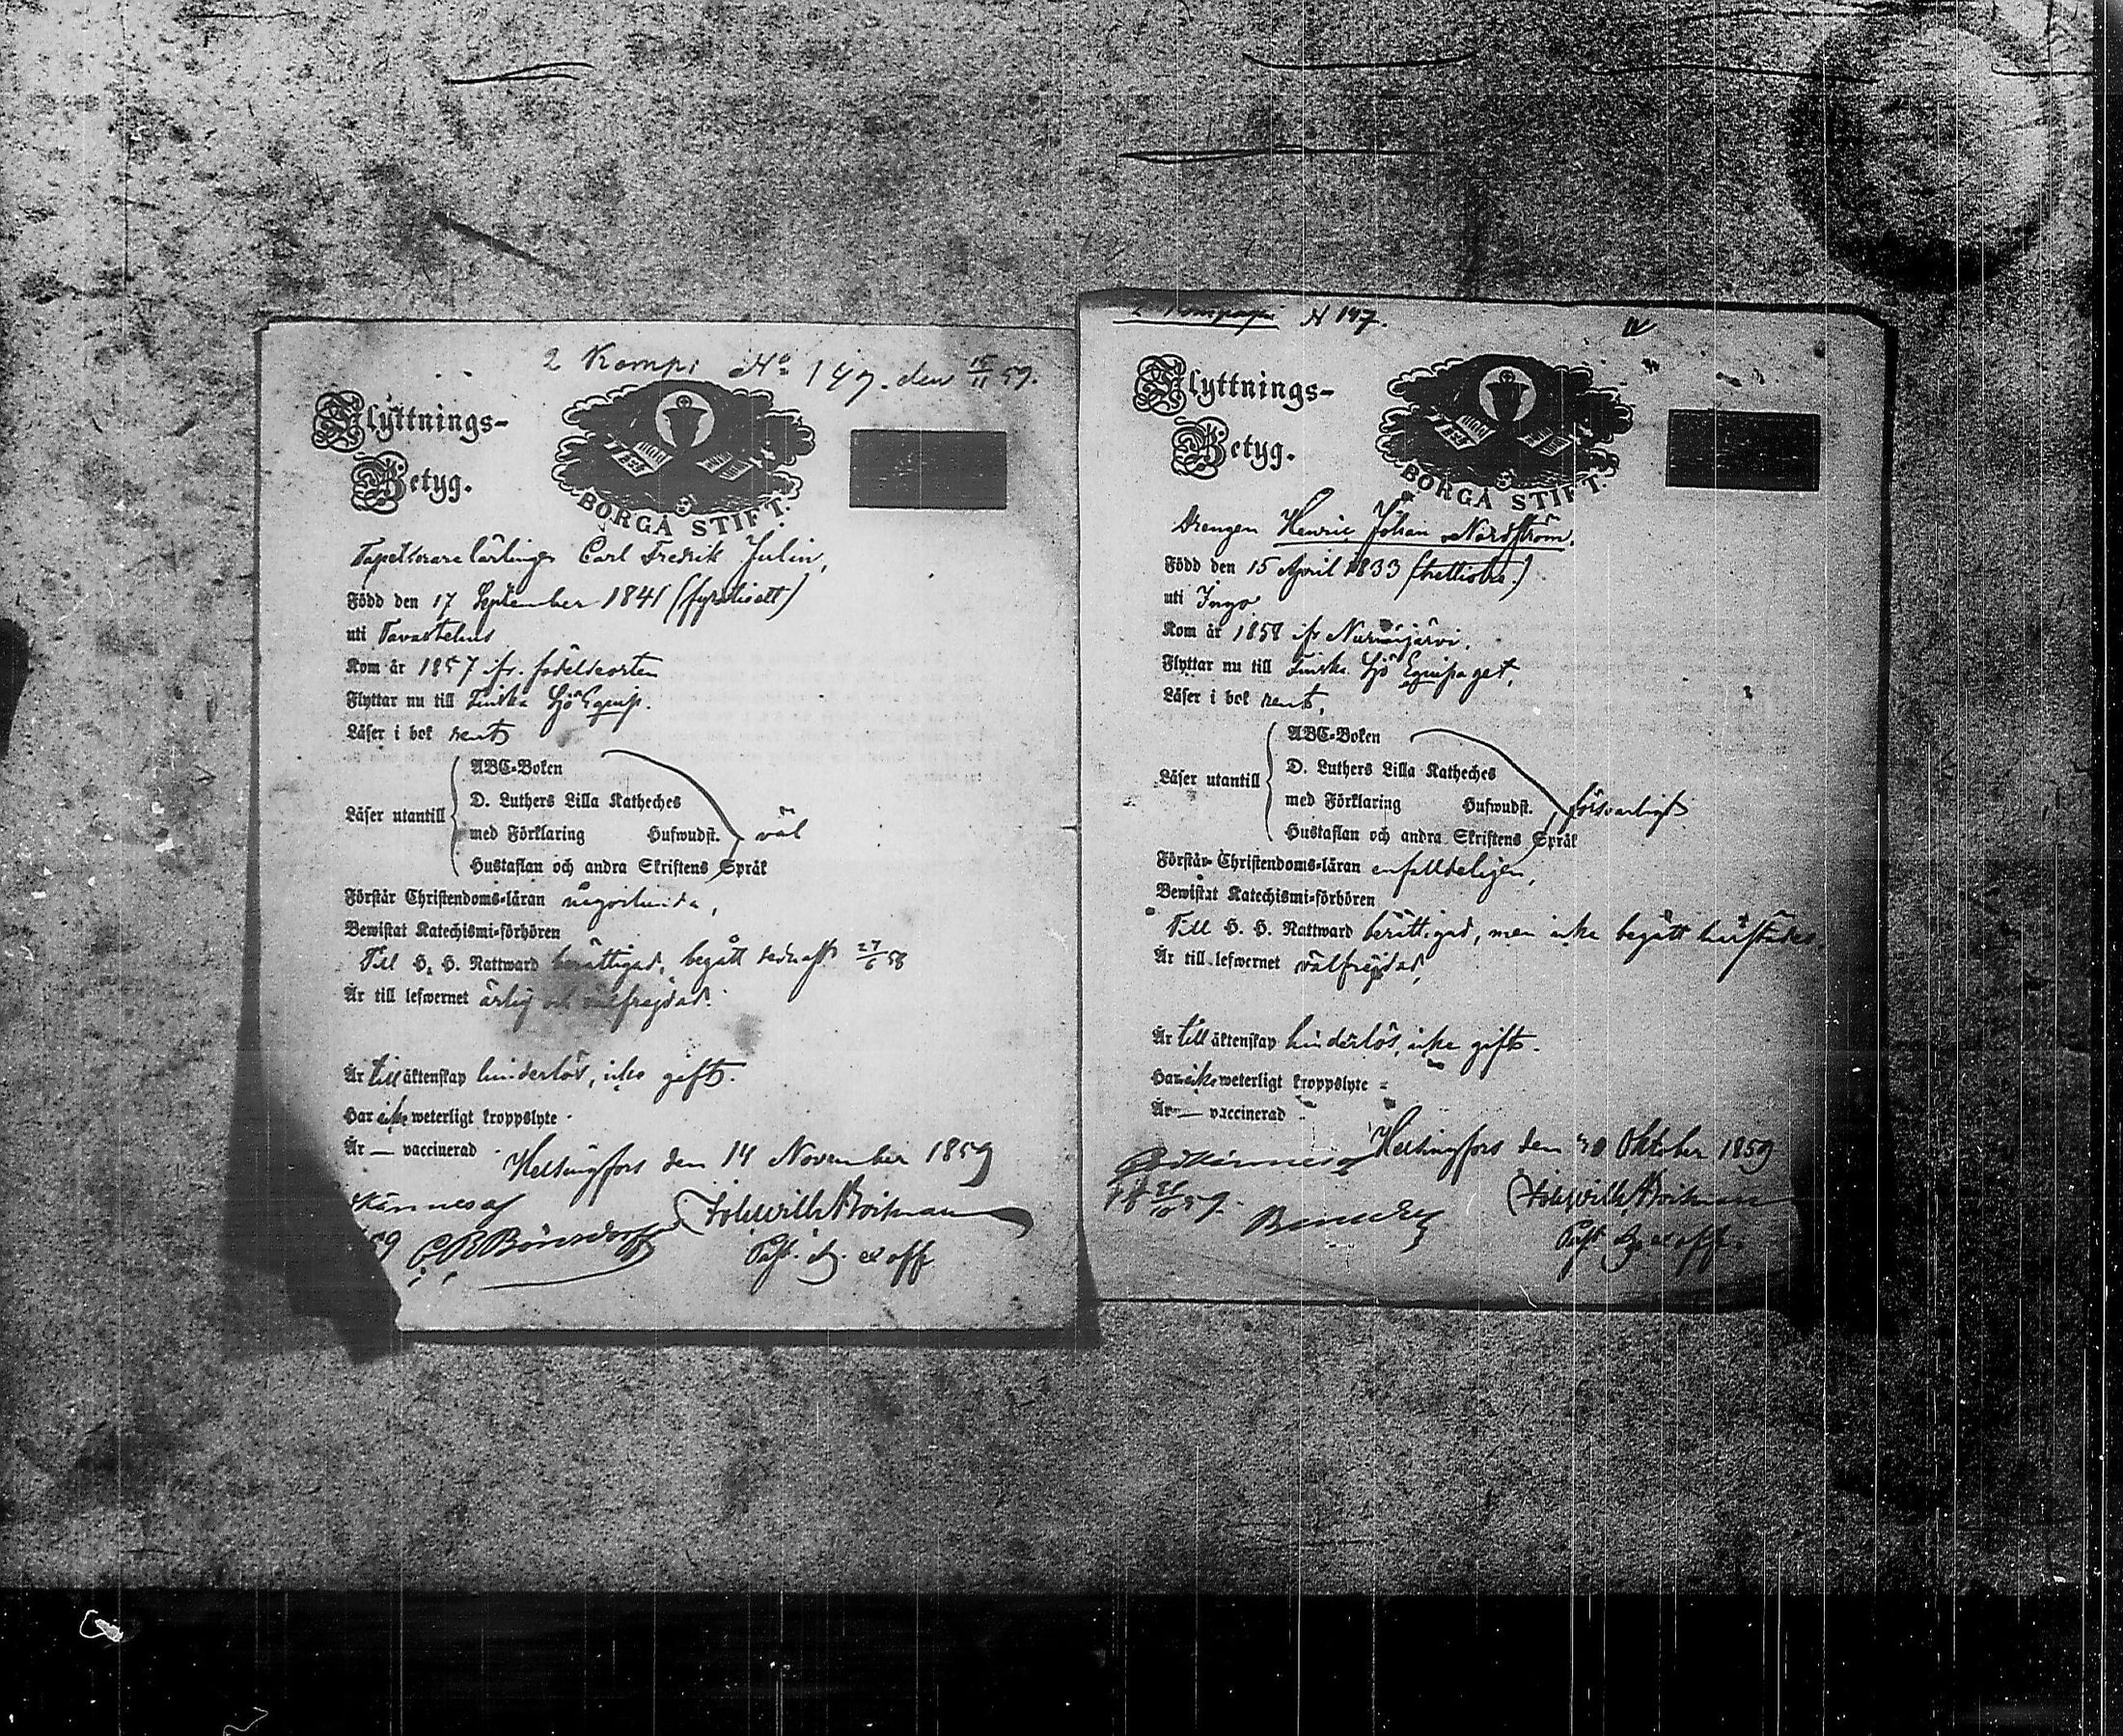 2 Komp: No 149. den 15/11 59.
Flyttnings-
Betyg.
BORGÅ STIFT.
Tapetserare lärlingen Carl Fredrik Julin,
Född den 17 September 1841 (fyratioett)
uti Tavastehus
Kom år 1857 ifr. födelseorten
Flyttar nu till Finska Sjö Equip.
Läser i bok rent
Läser utantill
ABC-Boken
D. Luthers Lilla Katheches
med Förklaring Hufwudst.
Hustaflan och andra Skriftens Språk
väl
Förstår Christendoms-läran någorlunda,
Bewistat Katechismi-förhören
Till H. H. Nattward berättigad, begått sednast 27/6 58
Är till lefwernet ärlig och välfrejdad.
Är till äktenskap hinderlös, icke gift.
Har icke weterligt kroppslyte
Är — vaccinerad
Helsingfors den 14 November 1859
kännes af
59
Past. adj. ex off
2 Kompagni N 147.
Flyttnings-
Betyg.
BORGÅ STIFT.
Drengen Henric Johan Nordström,
Född den 15 April 1833 (trettiotre)
uti Ingo
Kom år 1858 ifr Nurmijärvi,
Flyttar nu till Finska Sjö Equipaget,
Läser i bok rent,
Läser utantill
ABC-Boken
D. Luthers Lilla Katheches
med Förklaring Hufwudst.
Hustaflan och andra Skriftens Språk
försvarligt
Förstår Christendoms-läran enfalldeligen,
Bewistat Katechismi-förhören
Till H. H. Nattward berättigad, men icke begått härstädes.
Är till lefwernet välfrejdad,
Är till äktenskap hinderlös, icke gift.
Har icke weterligt kroppslyte
Är — vaccinerad
Helsingfors den Oktober 1859
Past. adj. ex off.